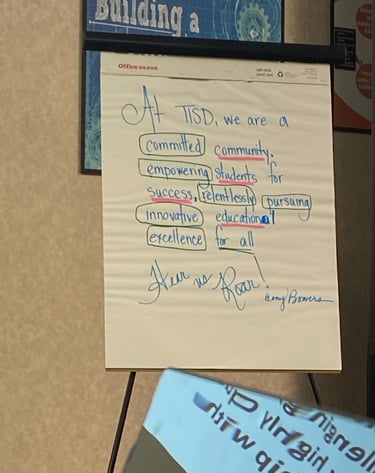 Building a
Office DEPOT
At TISD, we are a
committed community,
empowering students for
success, relentlessly pursuing
innovative educational
excellence for all
Hear us Roar!